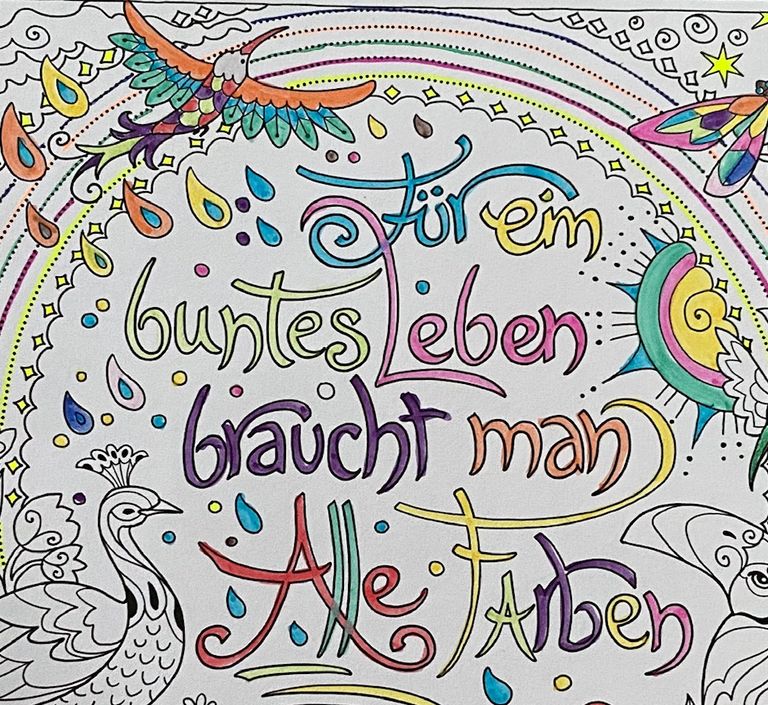 Für ein
buntes Leben
braucht man
Alle FArben